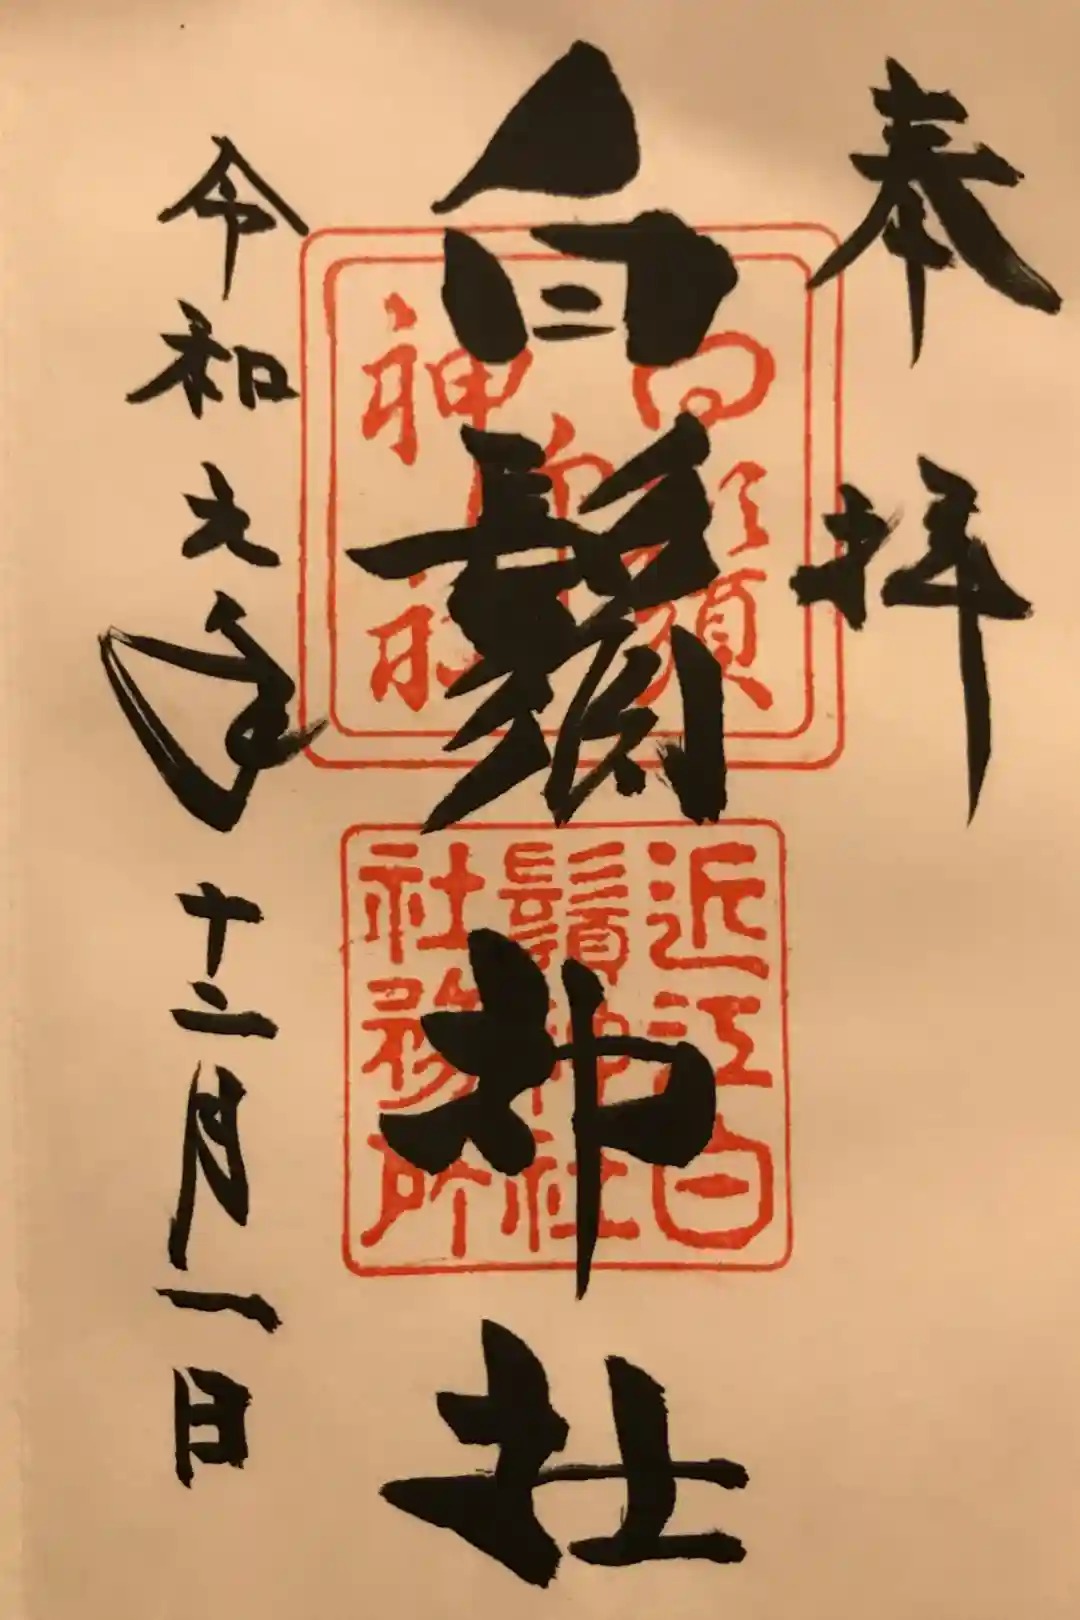 奉拝
白鬚神社
令和元年十二月一日
近江白
鬚神社
社務所